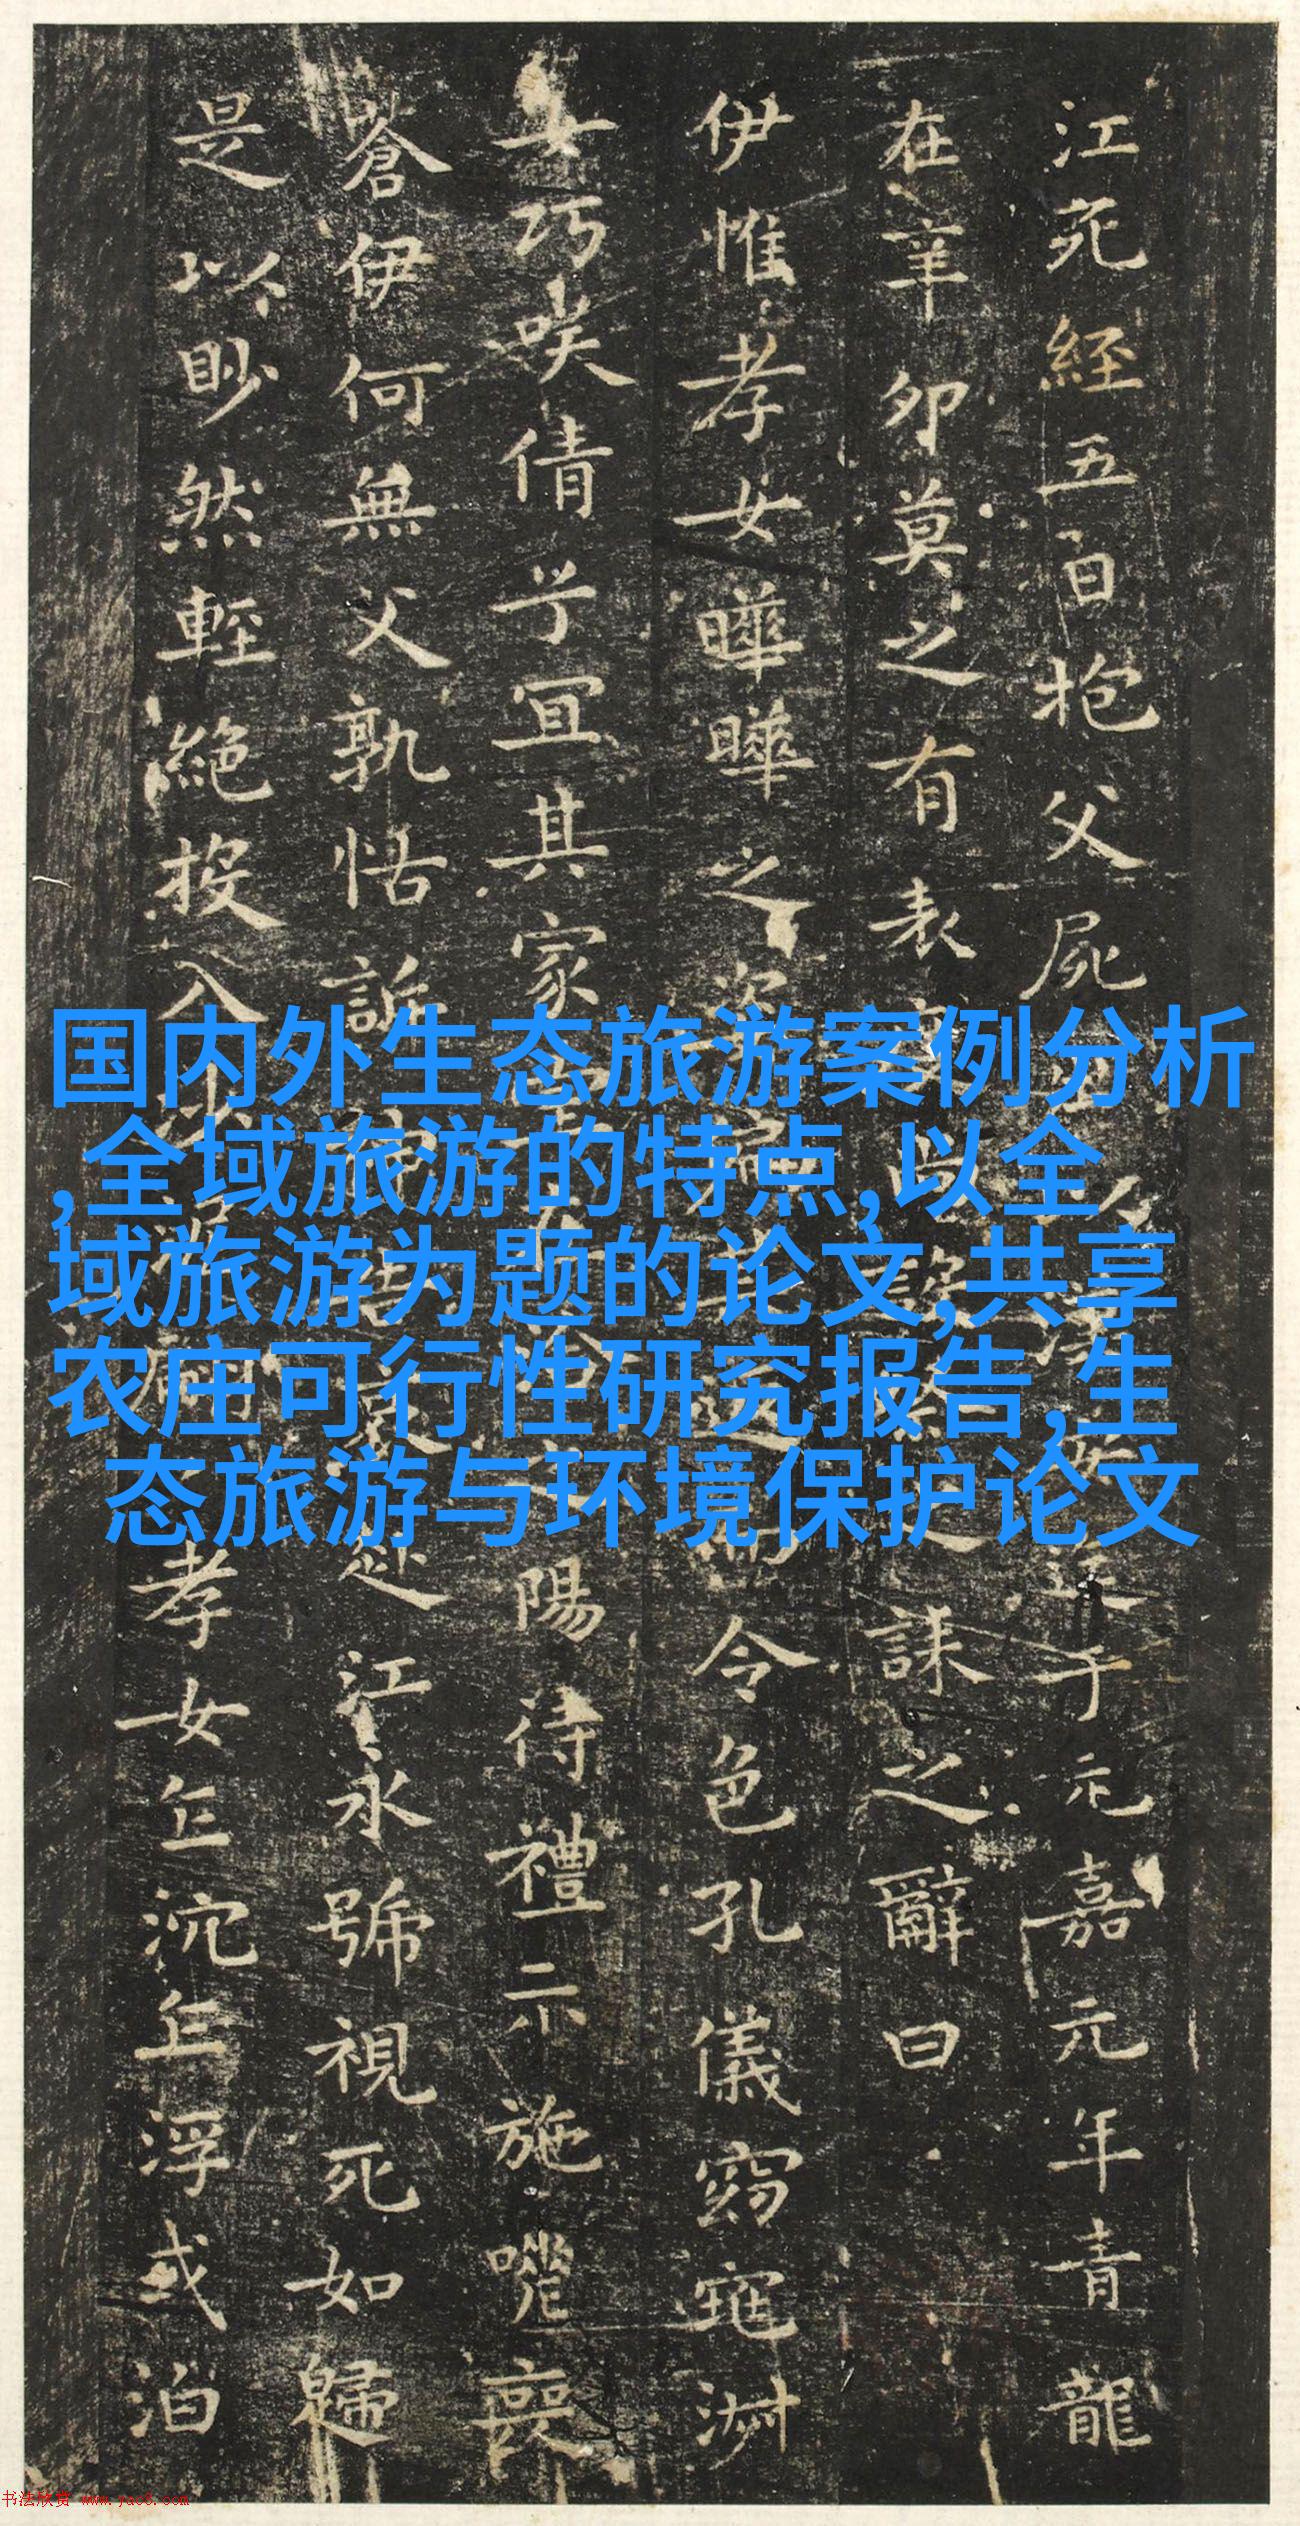 江死經五日抱父屍 于元嘉元年青龍
在辛卯莫之有表 誄之辭曰
伊惟孝女曄曄之 令色孔儀窈窕淑
女巧咲倩兮宜其家 陽待禮示施嗟喪
蒼伊何無父孰怙訴 赴江永號視死如歸
是以眇然輕絕投入 孝女乍沉乍浮或泊
国内外生态旅游案例分析
,全域旅游的特点,以全
域旅游为题的论文,共享
农庄可行性研究报告,生
态旅游与环境保护论文
书法欣赏 www.yac8.com